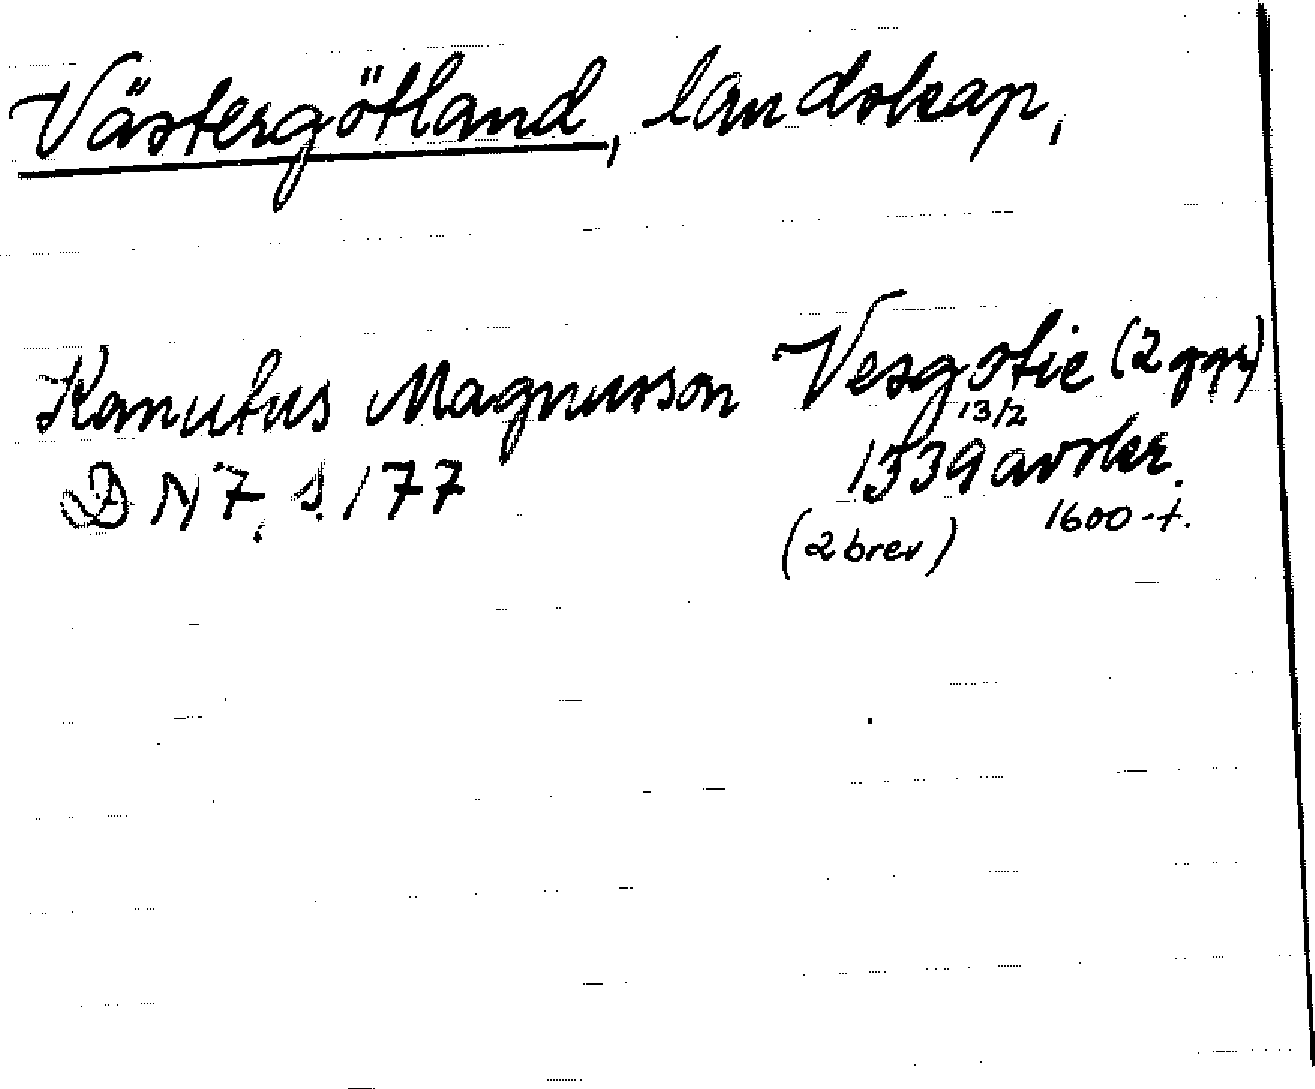 Västergötland, landskap,
Kanutus Magnusson Vesgotie (2 ggr)
13/2
D N 7, s. 177 1339 avskr.
(2 brev) 1600-t.